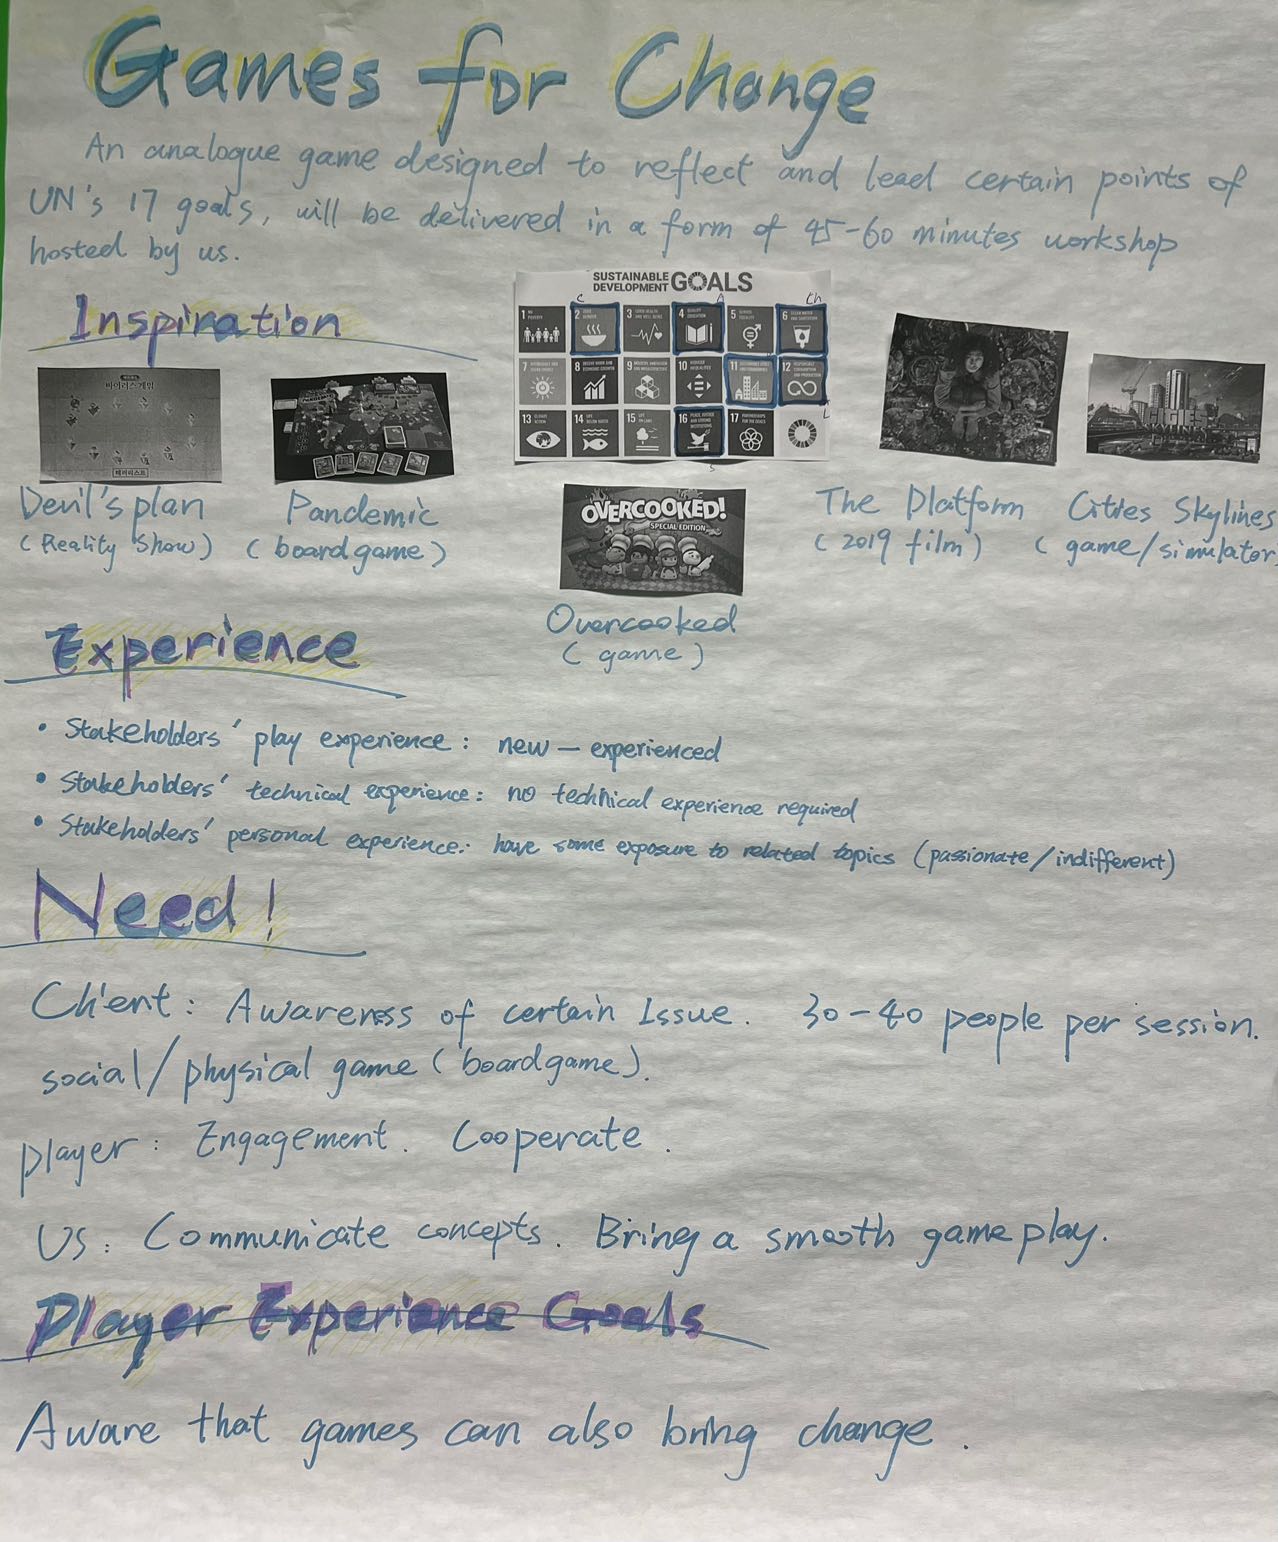 Games for Change
An analogue game designed to reflect and lead certain points of
UN's 17 goals, will be delivered in a form of 45-60 minutes workshop
hosted by us.
Inspiration
SUSTAINABLE
DEVELOPMENT GOALS
C A Ch
1 NO POVERTY
2 ZERO HUNGER
3 GOOD HEALTH AND WELL-BEING
4 QUALITY EDUCATION
5 GENDER EQUALITY
6 CLEAN WATER AND SANITATION
7
8 DECENT WORK AND ECONOMIC GROWTH
9
10 REDUCED INEQUALITIES
11 SUSTAINABLE CITIES AND COMMUNITIES
12 RESPONSIBLE CONSUMPTION AND PRODUCTION
13 CLIMATE ACTION
14 LIFE BELOW WATER
15 LIFE ON LAND
16 PEACE, JUSTICE AND STRONG INSTITUTIONS
17 PARTNERSHIPS FOR THE GOALS
L
S
바이러스 게임
테러리스트
Devil's plan
(Reality Show)
Pandemic
(boardgame)
OVERCOOKED!
SPECIAL EDITION
Overcooked
(game)
The Platform
(2019 film)
CITIES
Cities Skylines
(game/simulator)
Experience
• Stakeholders' play experience: new — experienced
• Stakeholders' technical experience: no technical experience required
• Stakeholders' personal experience: have some exposure to related topics (passionate/indifferent)
Need!
Client: Awareness of certain Issue. 30-40 people per session.
social/physical game (boardgame).
player: Engagement. Cooperate.
Us: Communicate concepts. Bring a smooth gameplay.
Player Experience Goals
Aware that games can also bring change.